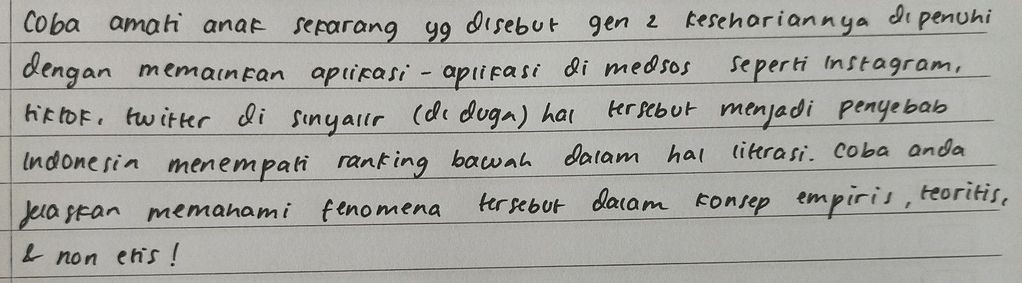 Coba amati anak sekarang yg disebut gen z kesehariannya dipenuhi
dengan memainkan aplikasi - aplikasi di medsos seperti instagram,
tiktok, twitter di sinyalir (di duga) hal tersebut menjadi penyebab
Indonesia menempati ranking bawah dalam hal literasi. Coba anda
jelaskan memahami fenomena tersebut dalam konsep empiris, teoritis,
& non etis!